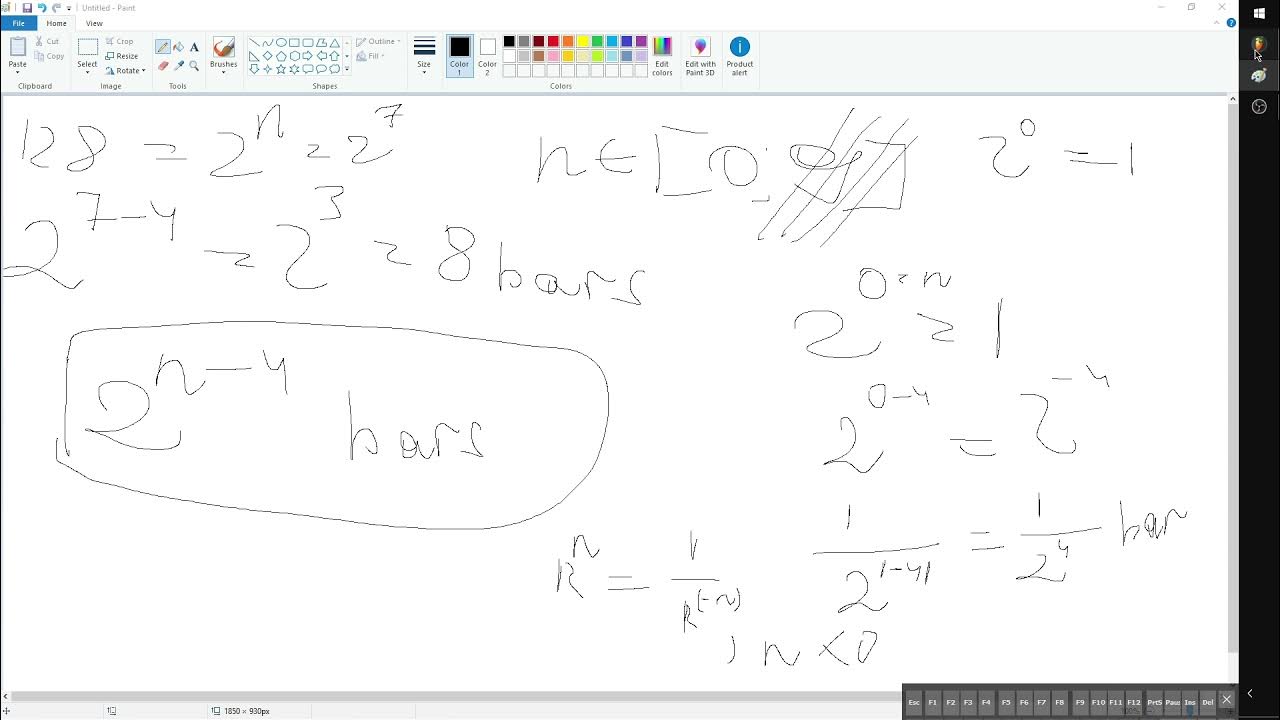 Untitled - Paint
File Home View
Paste Cut Copy Clipboard
Select Crop Resize Rotate Image
Tools
Brushes
Shapes Outline Fill
Size
Color 1 Color 2
Colors
Edit colors
Edit with Paint 3D
Product alert
128 = 2^n = 2^7
n ∈ [0;
2^0 = 1
2^7-4 = 2^3 = 8 bars
0 = n
2 = 1
2^n-4 bars
2^0-4 = 2^-4
1/2^|-4| = 1/2^4 bar
k^n = 1/k^(-n) , n < 0
1850 × 930px
Esc F1 F2 F3 F4 F5 F6 F7 F8 F9 F10 F11 F12 PrtS Paus Ins Del